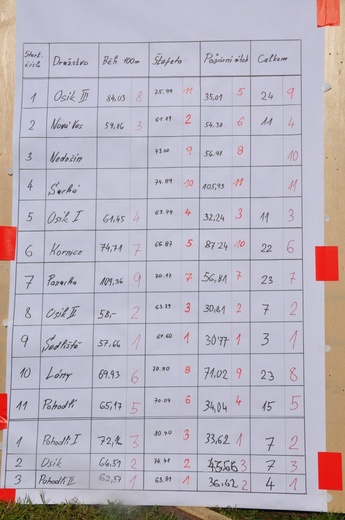 Start. číslo Družstvo Běh 100m Štafeta Požární útok Celkem
1 Osik III 84,03 8 75.99 11 35,01 5 24 9
2 Nová Ves 59,86 3 2 54.38 6 11 4
3 Nedošín 9 56.98 8 10
4 Suchá 74.89 10 105,93 11 11
5 Osik I 61,45 4 63.79 4 32,24 3 11 3
6 Kornice 74,71 7 66.87 5 87.24 10 22 6
7 Pazucha 109,36 9 70.17 7 56,81 7 23 7
8 Osik II 58,- 2 63.29 3 30.81 2 7 2
9 Sedliště 57,66 1 61.60 1 30.77 1 3 1
10 Lány 69.93 6 70.80 8 71.02 9 23 8
11 Pohodlí 65,17 5 70.09 6 34,04 4 15 5
1 Pohodlí I 72,12 3 80.40 3 33,62 1 7 2
2 Osik 66.51 2 74.41 2 3 7 3
3 Pohodlí II 62,57 1 63.91 1 36.62 2 4 1